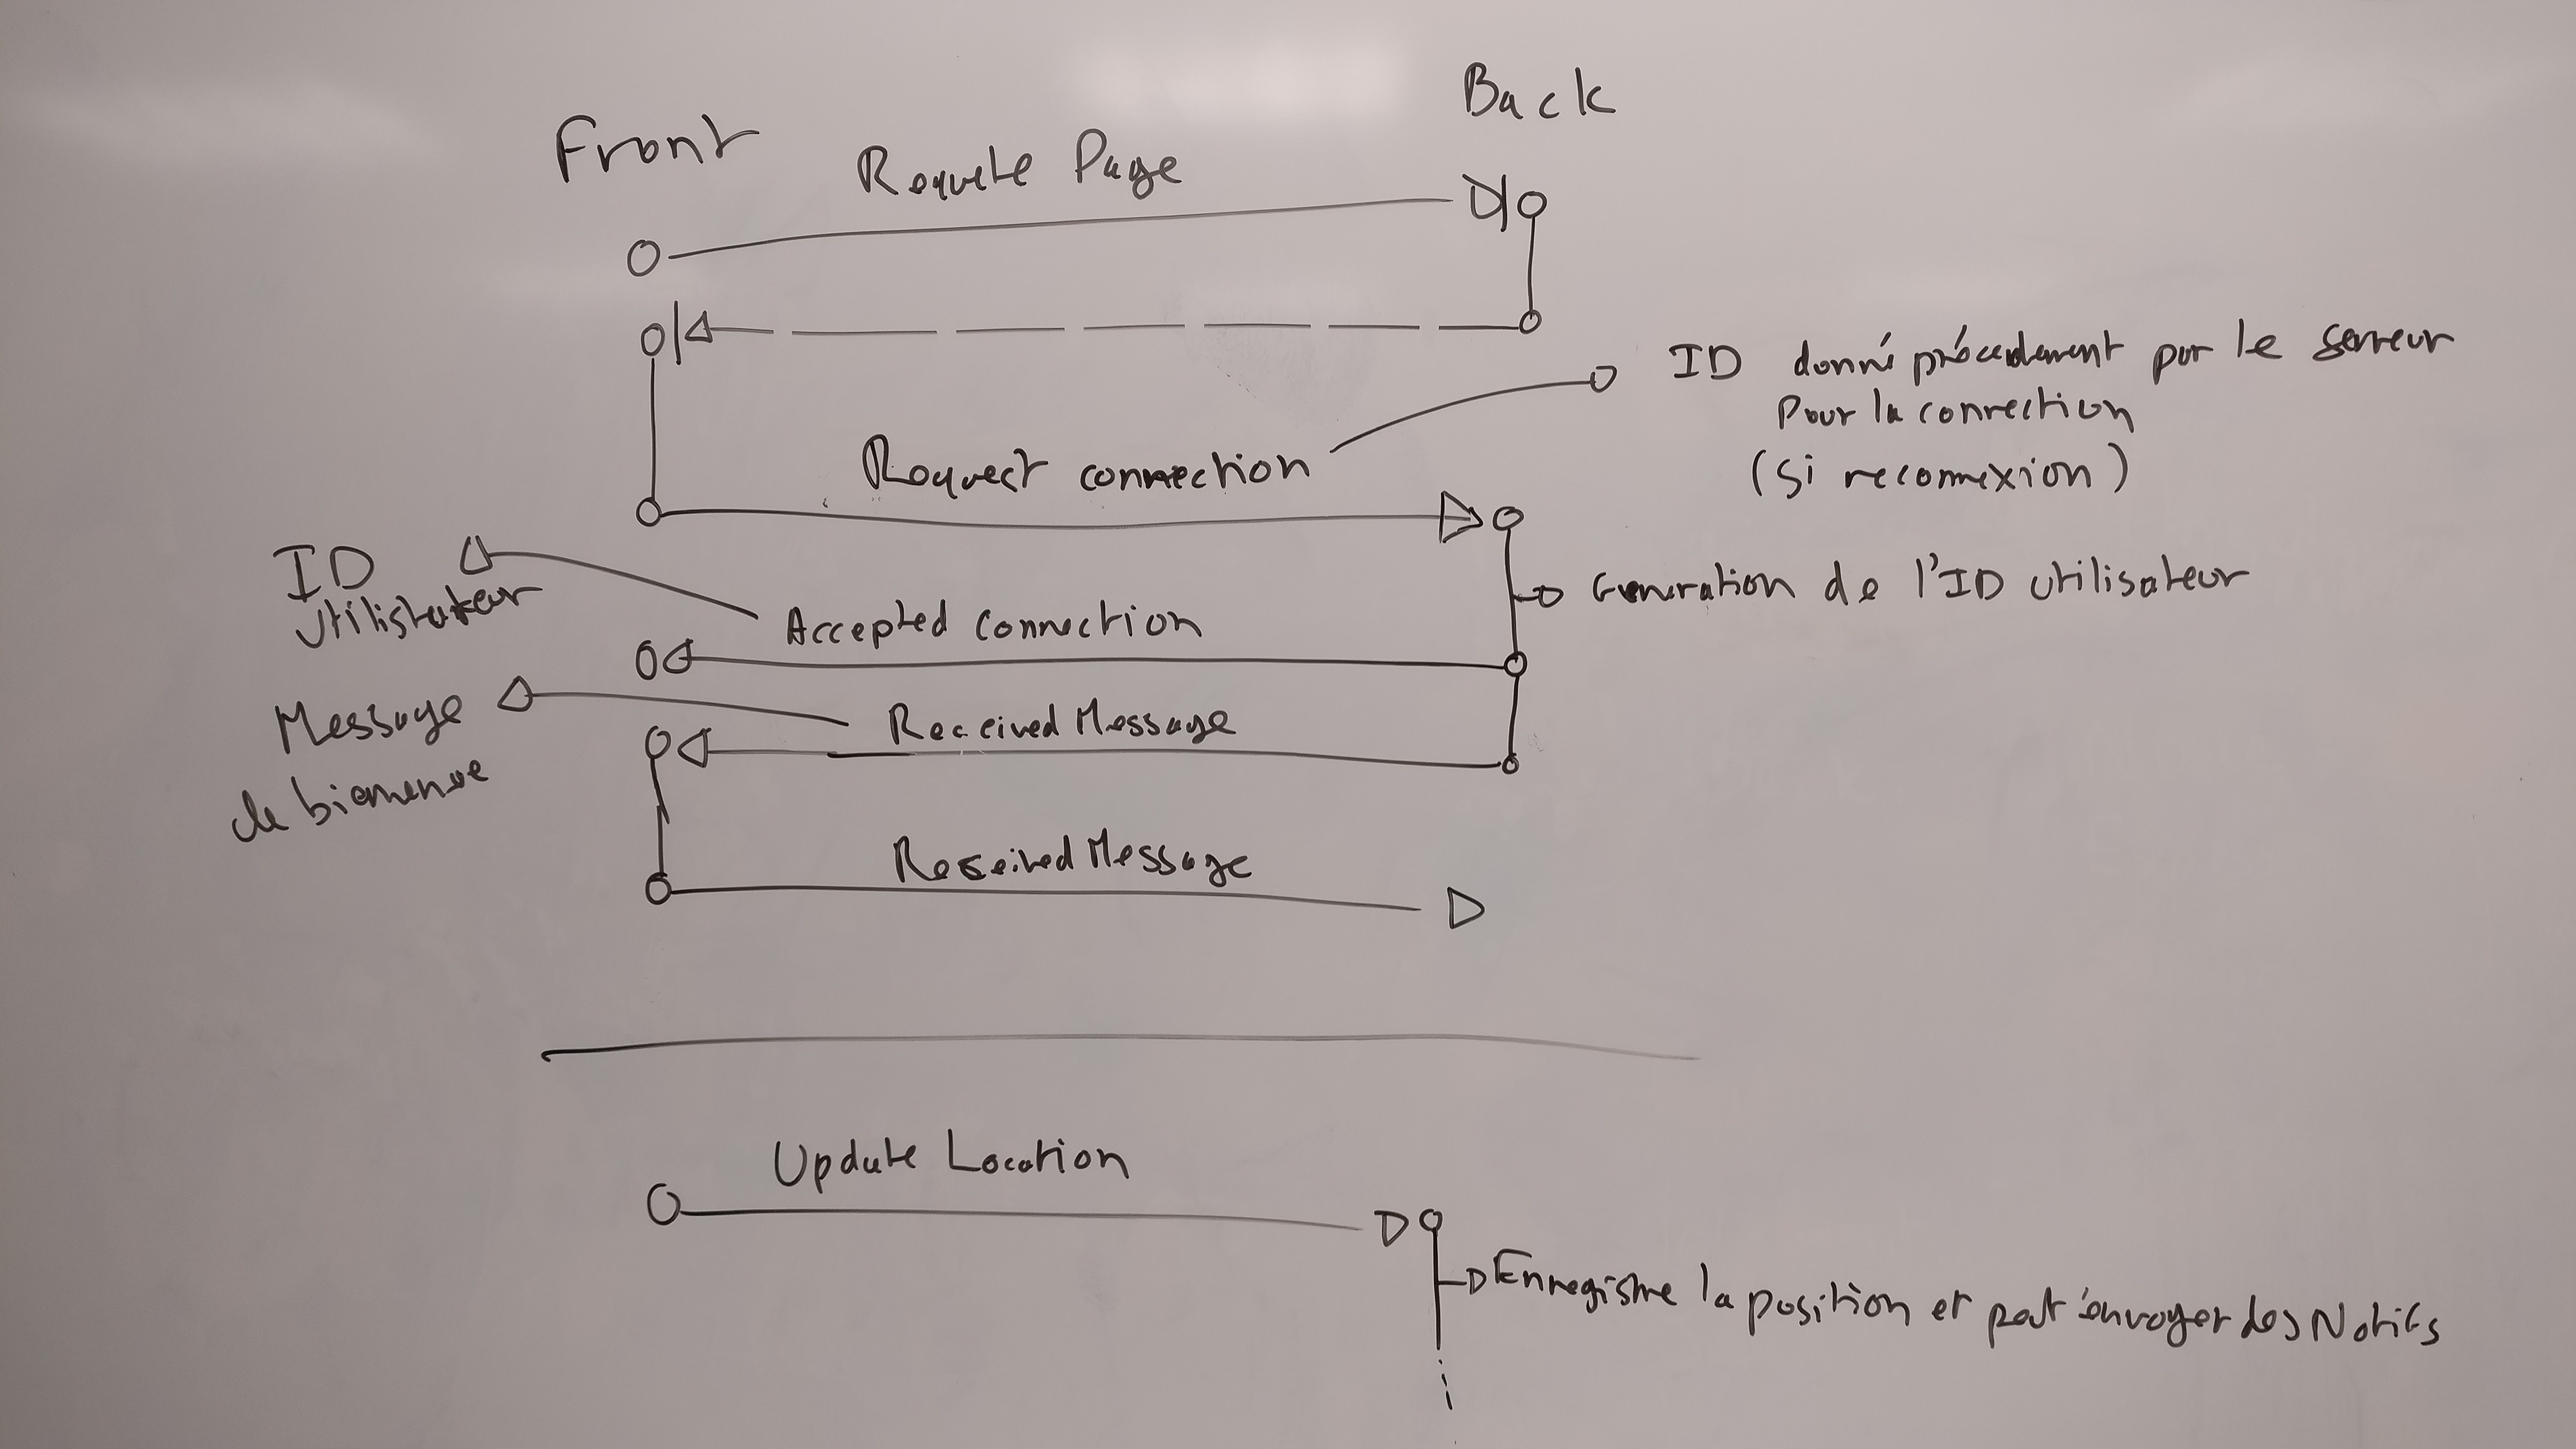 Front
Back
Requete Page
ID donné précedement par le serveur
Pour la connection
(Si reconnexion)
Request connection
ID
Utilisateur
Generation de l'ID utilisateur
Accepted Connection
Message
de bienvenue
Received Message
Received Message
Update Location
Enregistre la position et peut envoyer des Notifs